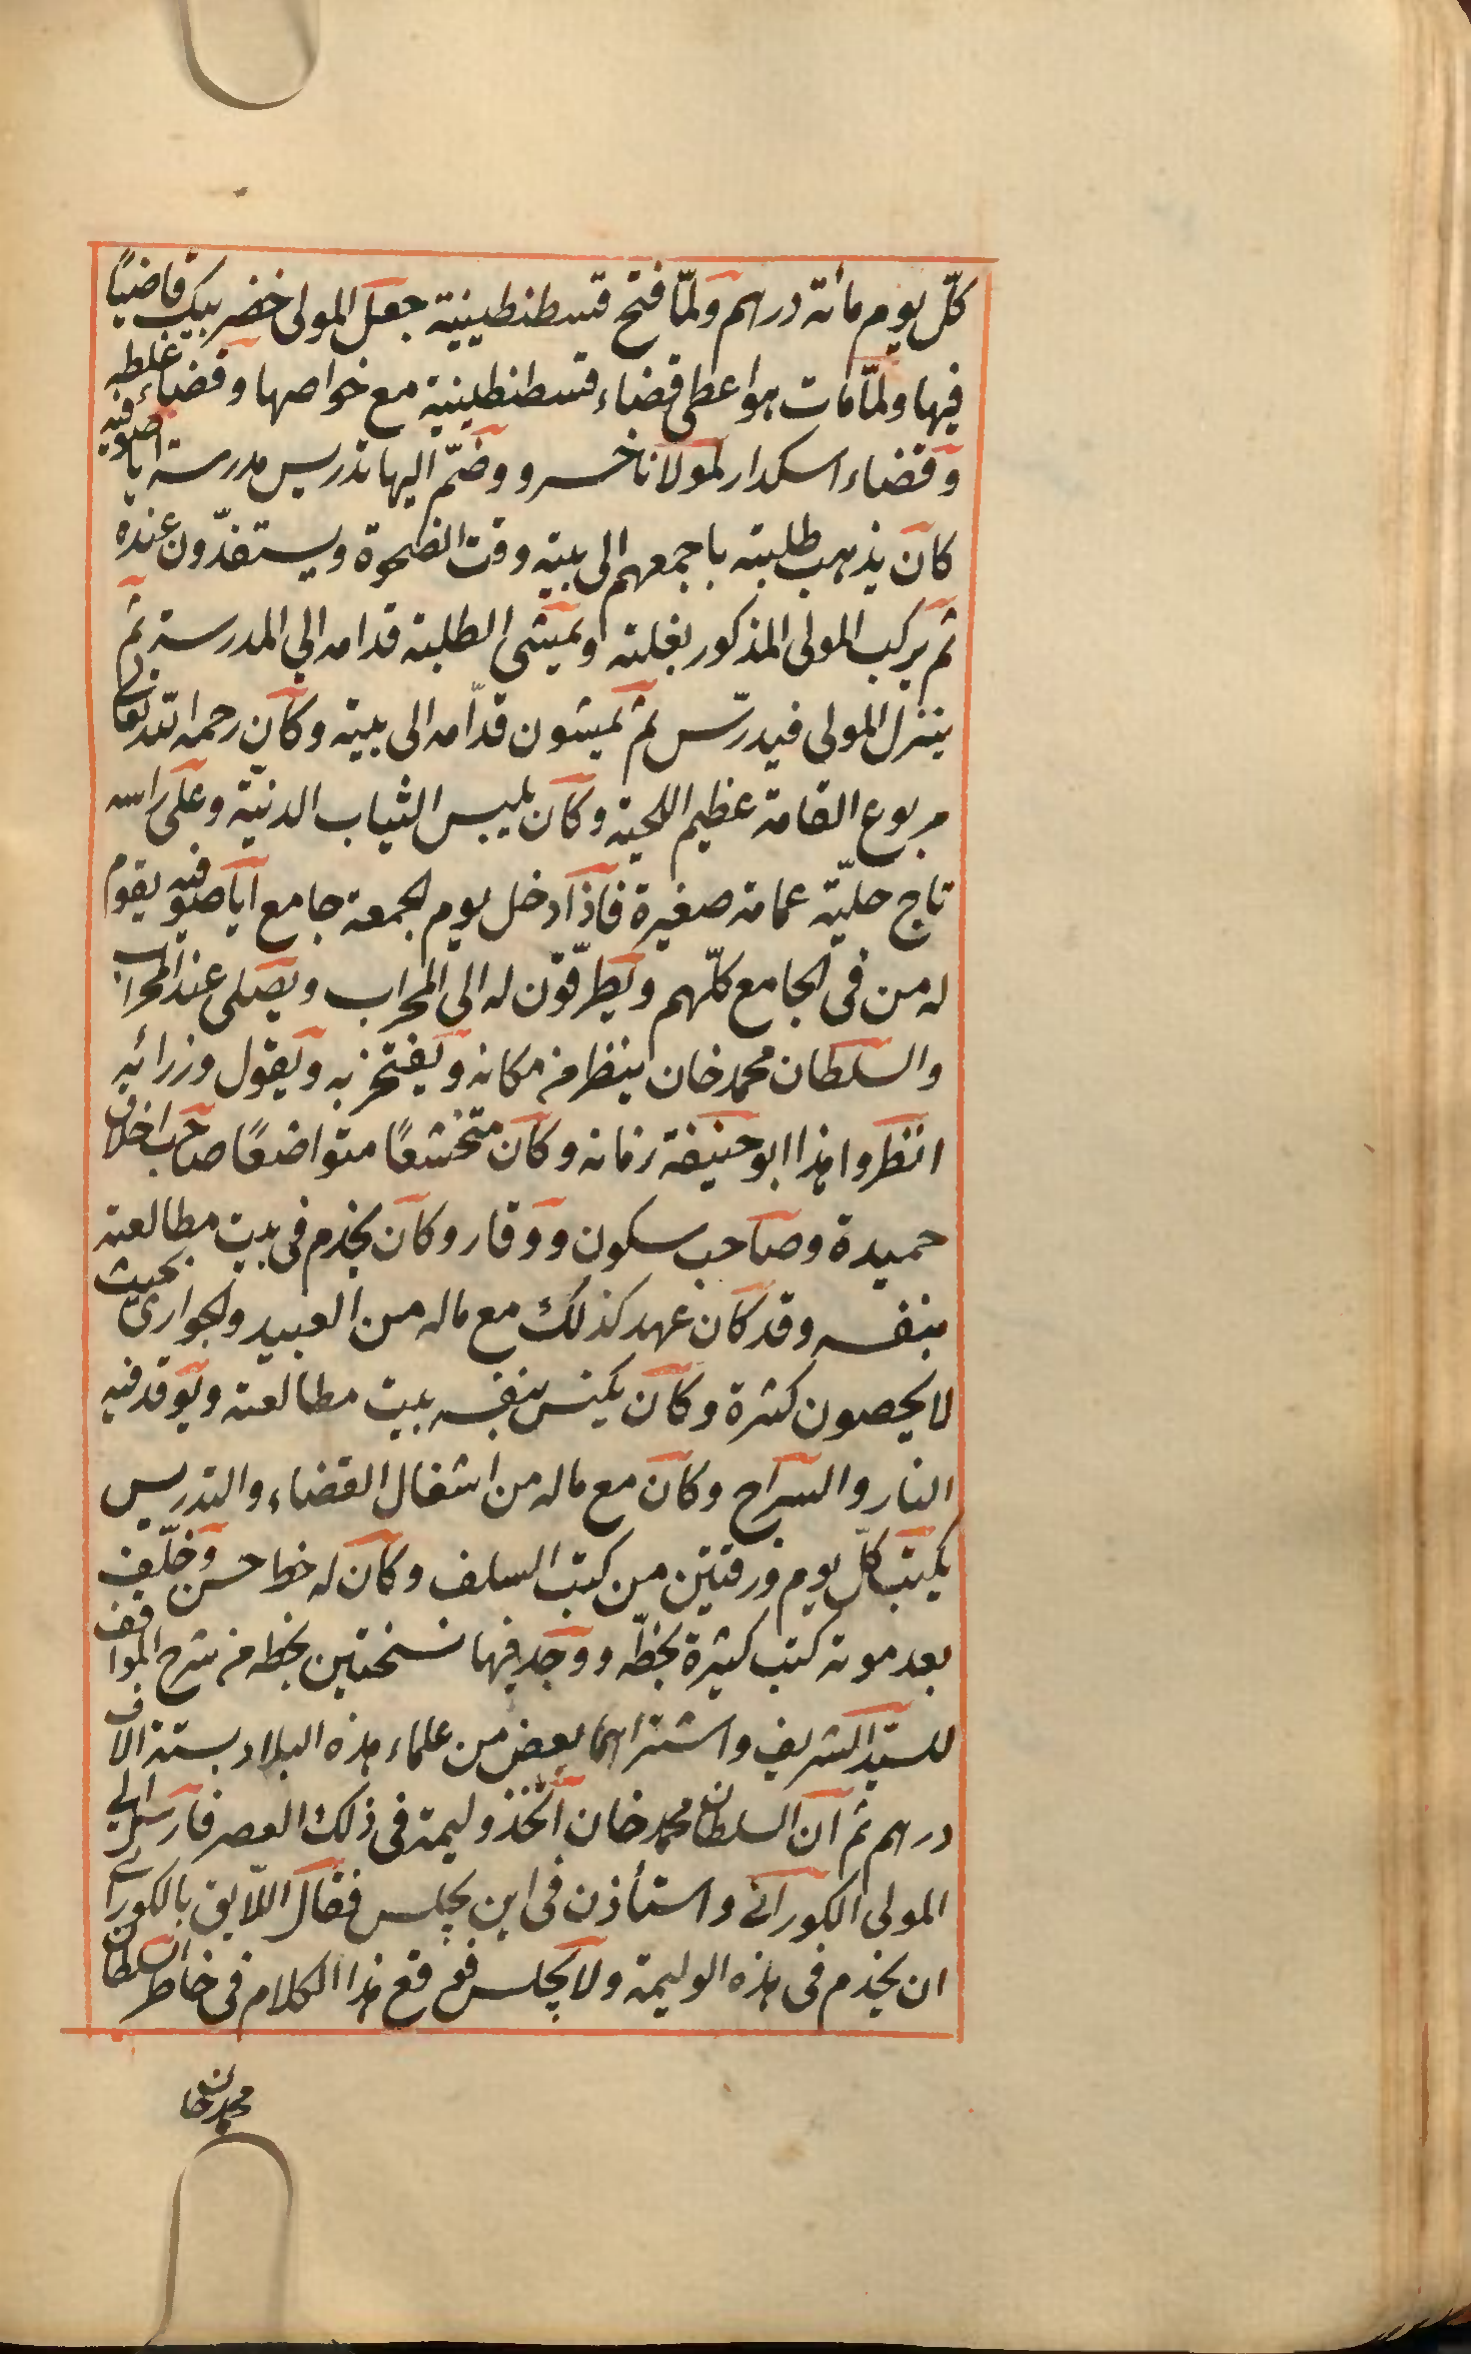 كلّ يوم مأته درهم ولمّا فتح قسطنطينية جعل المولى خضر بيك قاضيًا
فيها ولمّا مات هو اعطى قضاء قسطنطينية مع خواصها وقضاء غلطه
وقضاء اسكدار لمولانا خسرو وضمّ اليها تدريس مدرسة اياصوفيه
كان يذهب طلبته باجمعهم الى بيته وقت الضحوة ويستغدّون عنده
ثم يركب المولى المذكور بغلته ويمشى الطلبته قدامه الى المدرسة ثم
ينزل المولى فيدرّس ثم يمشون قدّامه الى بيته وكان رحمه الله تعالى
مربوع القامة عظيم اللحية وكان يلبس الثياب الدنيّة وعلى راسه
تاج حليّه عمامة صغيرة فاذا دخل يوم الجمعة جامع اياصوفيه يقوم
له من فى الجامع كلّهم ويطرّقون له الى المحراب ويصلى عند المحراب
والسلطان محمد خان ينظر من مكانه ويفتخر به ويقول وزرائه
انظروا هذا ابو حنيفة زمانه وكان متخشعًا متواضعًا صاحب اخلاق
حميدة وصاحب سكون ووقار وكان يخدم فى بيت مطالعته
بنفسه وقد كان عهد كذلك مع ماله من العبيد والجوارى بحيث
لا يحصون كثرة وكان يكنس بنفسه بيت مطالعته ويوقد فيه
النار والسراج وكان مع ماله من اشغال القضاء والتدريس
يكتب كلّ يوم ورقتين من كتب السلف وكان له خط حسن وخلّف
بعد موته كتب كثيرة بخطّه ووجد فيها نسختين بخطه من شرح المواقف
للسيّد الشريف واشتراهما بعض من علماء هذه البلاد بستة الاف
درهم ثم ان السلطان محمد خان اتّخذ وليمة فى ذلك العصر فارسل الى
المولى الكورانى واستأذن فى اين يجلس فقال اللّايق بالكورانى
ان يخدم فى هذه الوليمة ولا يجلس فوقع هذا الكلام فى خاطر السلطان
محمد خان